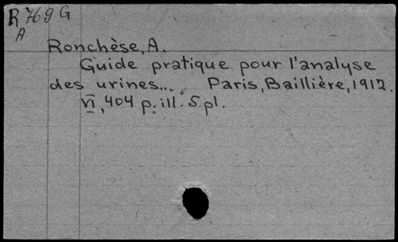 R 769 G
A
Ronchèse, A.
Guide pratique pour l'analyse
des urines... Paris, Baillière, 1912.
VI, 404 p. ill. 5 pl.